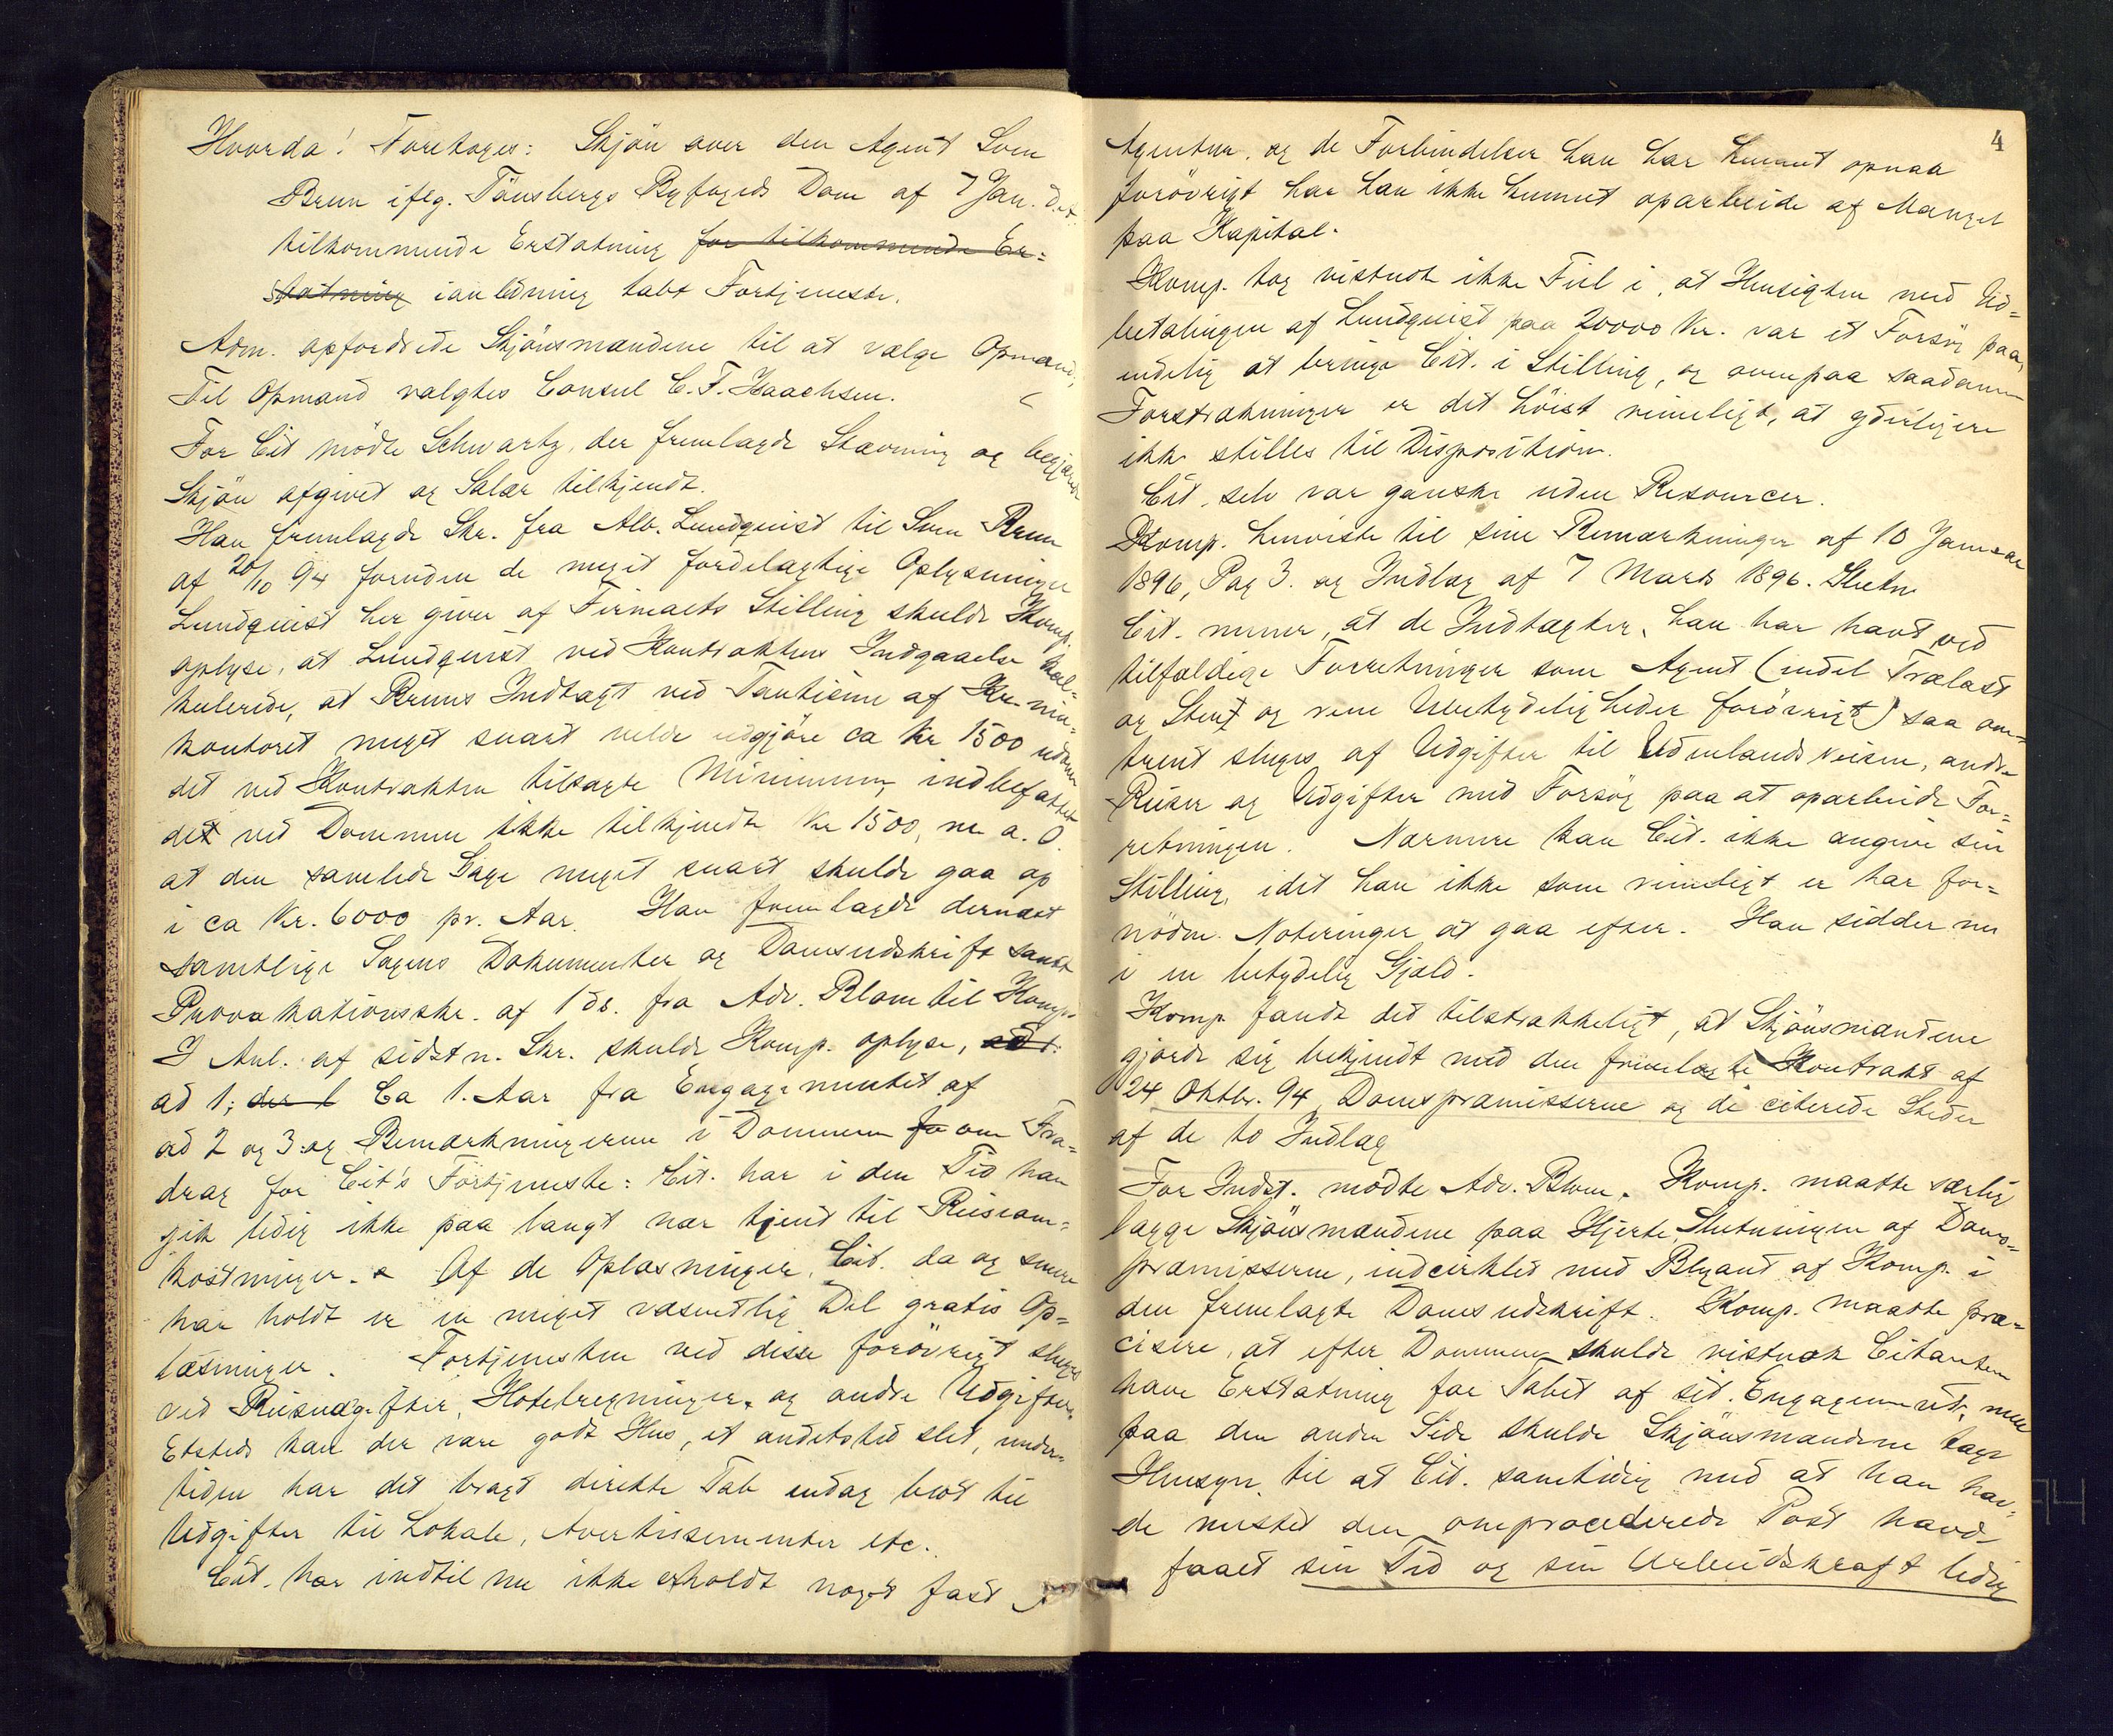 Hvorda! Foretoges: Skjön over den Agent Sven
Brun iflg. Tönsbergs Byfogeds Dom af 7 Jan. d.A.
tilkommende Erstatning for tilkommende Er=
statning ianledning tabt Fortjeneste.
Adm. opfordrede Skjönsmændene til at vælge Opmand,
Til Opmand valgtes Consul C. F. Isaachsen.
For Cit mödte Schwartz, der fremlagde Stævning og begjærede
Skjön afgivet og Salær tilkjendt.
Han fremlagde Skr. fra Alb. Lundquist til Sven Brun
af 20/10 94 foruden de meget fordelagtige Oplysninger
Lundquist her giver af Firmaets Stilling skulde Komp.
oplyse, at Lundquist ved Kontraktens Indgaaelse kal=
kulerede, at Bruns Indtægt ved Tantieme af Kr.nia=
kontoret meget snart vilde udgjöre ca Kr 1500 udenom
det ved Kontrakten tilsagte Minimum, indbefattet
det ved Dommen ikke tilkjendte Kr 1500, m. a. O.
at den samlede Gage meget snart skulde gaa op
i ca Kr. 6000 pr. Aar. Han fremlagde dernæst
samtlige Sagens Dokumenter og Domsudskrift samt
Provokationsskr. af 1 ds. fra Adv. Blom til Komp.
I Anl. af sidstn. Skr. skulde Komp. oplyse, ad 1:
ad 1; der l Ca 1. Aar fra Engagementet af
ad 2 og 3 og Bemærkningerne i Dommen fo om Fra=
drag for Cit's Fortjeneste: Cit. har i den Tid han
gik ledig ikke paa langt nær tjent til Reiseom=
kostninger. Af de Oplæsninger, Cit. da og senere
har holdt er en meget væsentlig Del gratis Op=
læsninger. Fortjenesten ved disse forövrigt sluges
ved Reiseudgifter, Hotelregninger, og andre Udgifter.
Etsteds kan der være godt Hus, et andetsted slet, under=
tiden har det bragt direkte Tab endog blot til
Udgifter til Lokale, Avertissementer etc.
Cit. har indtil nu ikke erholdt noget fast
4
Agentur, og de Forbindelser han har kunnet opnaa
forövrigt har han ikke kunnet oparbeide af Mangel
paa Kapital.
Komp. tog vistnok ikke Feil i, at Hensigten med Ud=
betalingen af Lundquist paa 20000 Kr. var et Forsög paa,
endelig at bringe Cit. i Stilling, og ovenpaa saadanne
Forstrækninger er det höist rimeligt, at yderligere
ikke stilles til Disposition.
Cit. selv var ganske uden Resourcer.
Komp. henviste til sine Bemærkninger af 10 Januar
1896, Pag 3. og Indlæg af 7 Marts 1896. Slutn.
Cit. mener, at de Indtægter, han har havt ved
tilfældige Forretninger som Agent (endel Trælast
og Sten og rene Ubetydeligheder forövrigt) saa om=
trent sluges af Udgifter til Udenlandsreisen, andre
Reiser og Udgifter med Forsög paa at oparbeide For=
retningen. Nærmere kan Cit. ikke angive sin
Stilling, idet han ikke som rimeligt er har for=
nödne Noteringer at gaa efter. Han sidder nu
i en betydelig Gjæld.
Komp fandt det tilstrækkeligt, at Skjönsmændene
gjorde sig bekjendt med den fremlagte Kontrakt af
24 Oktbr. 94, Domspræmisserne og de citerede Steder
af de to Indlæg
For Indst. mödte Adv. Blom. Komp. maatte særlig
lægge Skjönsmændene paa Hjerte Slutningen af Doms=
præmisserne, indcirklet med Blyant af Komp. i
den fremlagte Domsudskrift. Komp. maatte præ=
cisere, at efter Dommen skulde vistnok Citanten
have Erstatning for Tabet af sit Engagement, men
paa den anden Side skulde Skjönsmændene tage
Hensyn til at Cit. samtidig med at han hav=
de mistet den omprocederede Post havde
faaet sin Tid og sin Arbeidskraft ledig